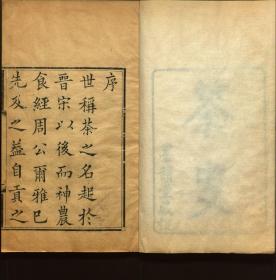 序
世稱茶之名起於
晉宋以後而神農
食經周公爾雅已
先及之蓋自貢之